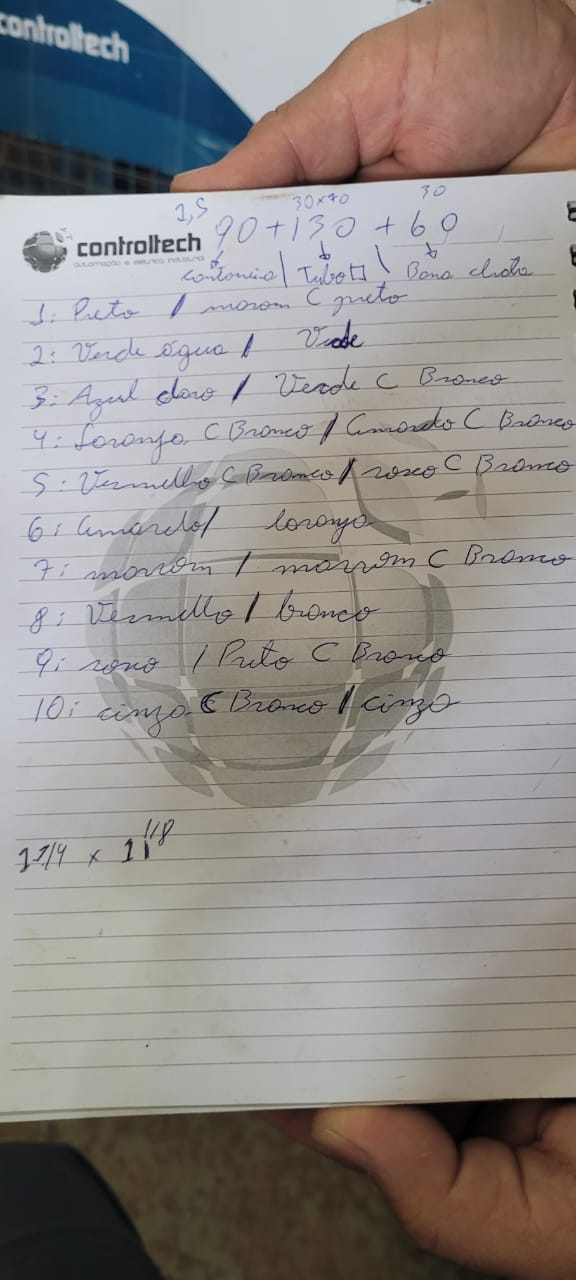 controltech
1,5 30x70 30
90 + 130 + 60
controltech
automação e elétrica industrial
Cantoneira | Tubo □ \ Barra chata
1: Preto / marom C preto
2: Verde água / Verde
3: Azul claro / Verde C Branco
4: Laranja C Branco / Amarelo C Branco
5: Vermelho C Branco / roxo C Branco
6: Amarelo / laranja
7: marrom / marrom C Branco
8: Vermelho / branco
9: roxo / Preto C Branco
10: cinza C Branco / cinza
1 1/4 x 1/8